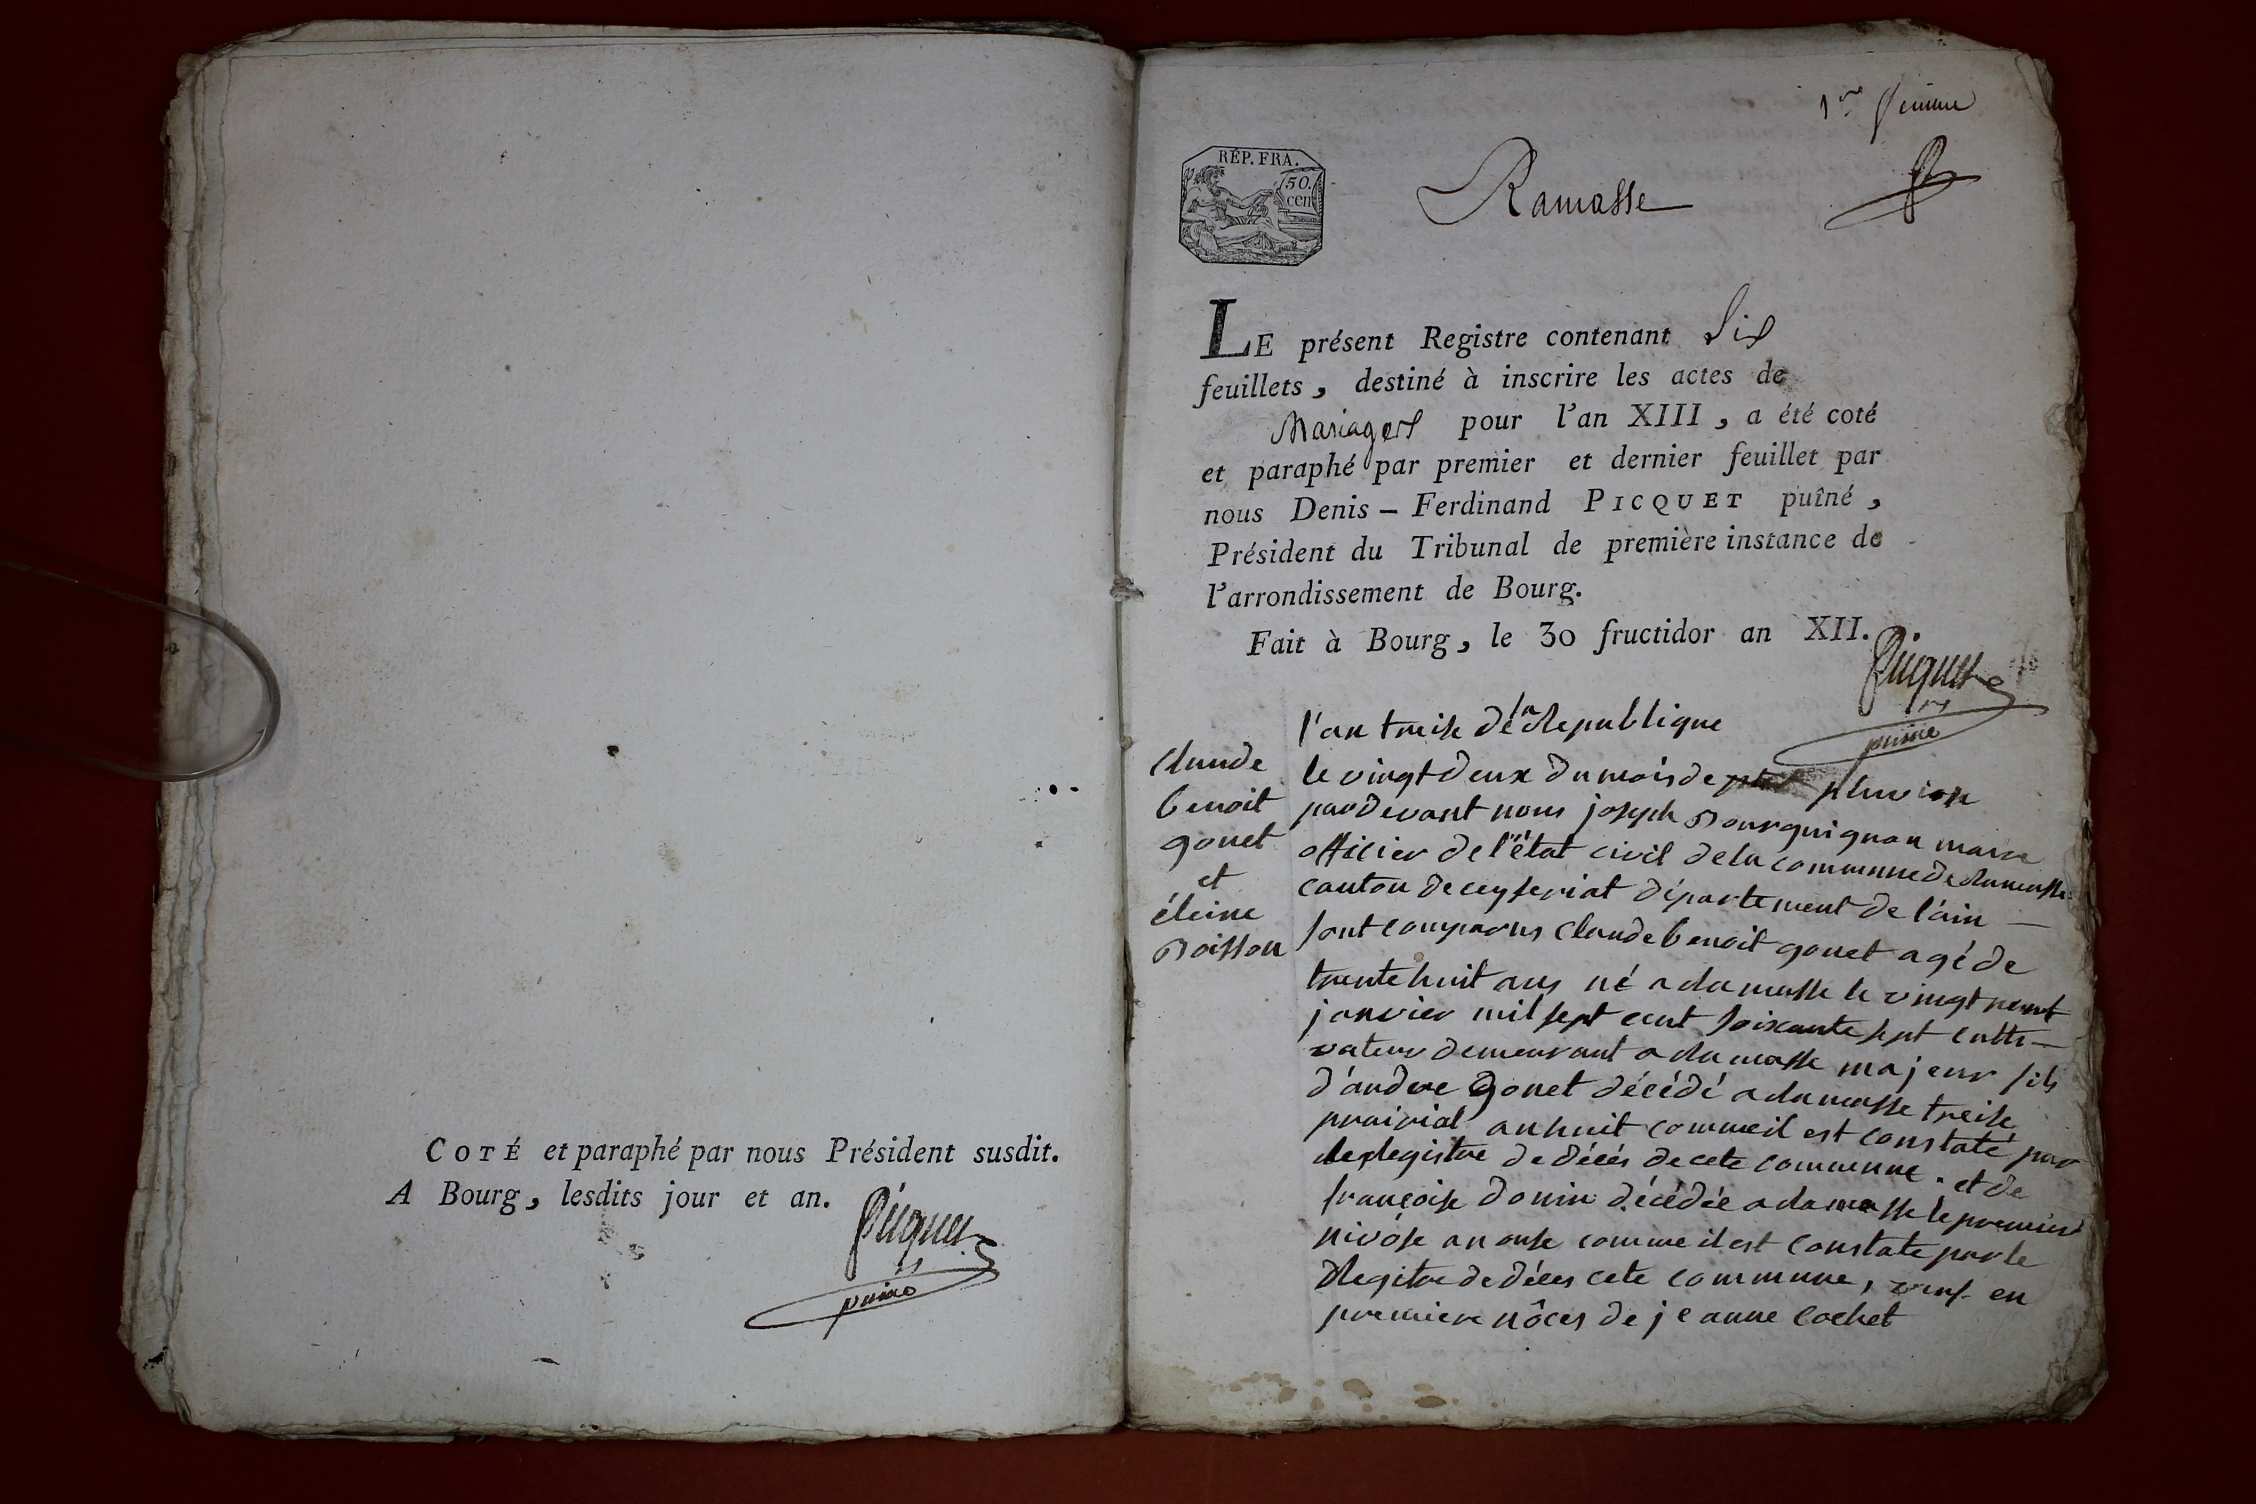 COTÉ et paraphé par nous Président susdit.
A Bourg, lesdits jour et an.
Picquet
puiné
1ere feuille
RÉP. FRA.
50.
cen
Ramasse
LE présent Registre contenant Six
feuillets, destiné à inscrire les actes de
Mariages pour l'an XIII, a été coté
et paraphé par premier et dernier feuillet par
nous Denis - Ferdinand PICQUET puîné,
Président du Tribunal de première instance de
l'arrondissement de Bourg.
Fait à Bourg, le 30 fructidor an XII.
Picquet
puiné
Claude
benoit
gonet
et
éleine
Boisson
l'an treise de la Republique
le vingt deux du mois de pluviose
pardevant nous joseph Bourguignon maire
officier de l'état civil de la commune de Ramasse
canton de ceyseriat département de l'ain
sont comparus Claude benoit gonet agé de
trente huit ans né a Ramasse le vingt neuf
janvier mil sept cent soixante sept culti-
vateur demeurant a Ramasse majeur fils
d'andre gonet décédé a Ramasse treise
prairial an huit comme il est constaté par
le Registre de décés de cete commune. et de
françoise donin décédée a Ramasse le premier
nivóse an onse comme il est constate par le
Regitre de déces cete commune, veuf en
premiere nôces de jeanne Cochet